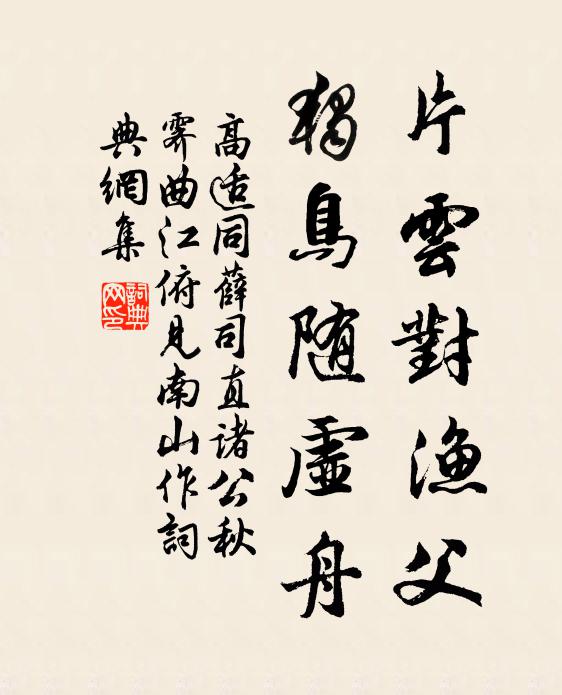 片雲對漁父
獨鳥随虛舟
高适同薛司直諸公秋
霽曲江俯見南山作詞
典網集
詞典网印